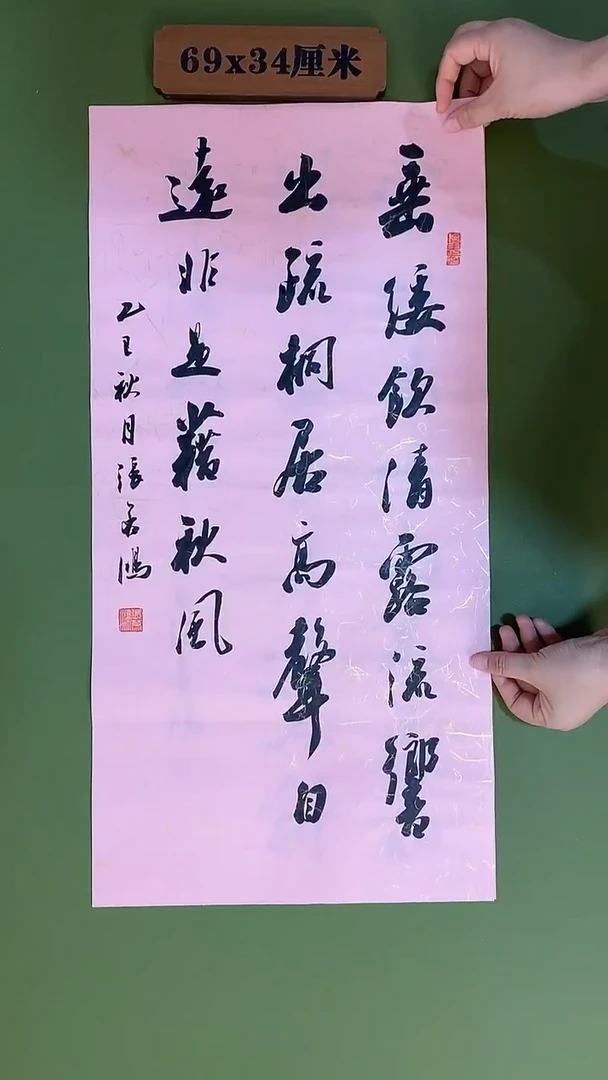 69x34厘米
垂緌飲清露流響
出疏桐居高聲自
遠非是藉秋風
乙巳秋月張若鴻